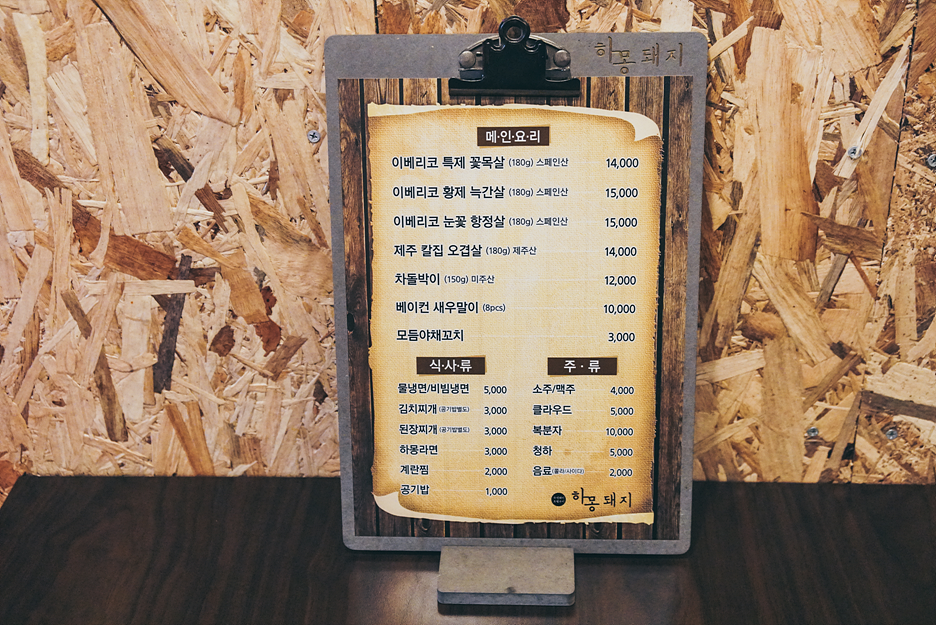 하몽돼지
메·인·요·리
이베리코 특제 꽃목살 (180g) 스페인산 14,000
이베리코 황제 늑간살 (180g) 스페인산 15,000
이베리코 눈꽃 항정살 (180g) 스페인산 15,000
제주 칼집 오겹살 (180g) 제주산 14,000
차돌박이 (150g) 미주산 12,000
베이컨 새우말이 (8pcs) 10,000
모듬야채꼬치 3,000
식·사·류
물냉면/비빔냉면 5,000
김치찌개 (공기밥별도) 3,000
된장찌개 (공기밥별도) 3,000
하몽라면 3,000
계란찜 2,000
공기밥 1,000
주·류
소주/맥주 4,000
클라우드 5,000
복분자 10,000
청하 5,000
음료(콜라/사이다) 2,000
하몽돼지